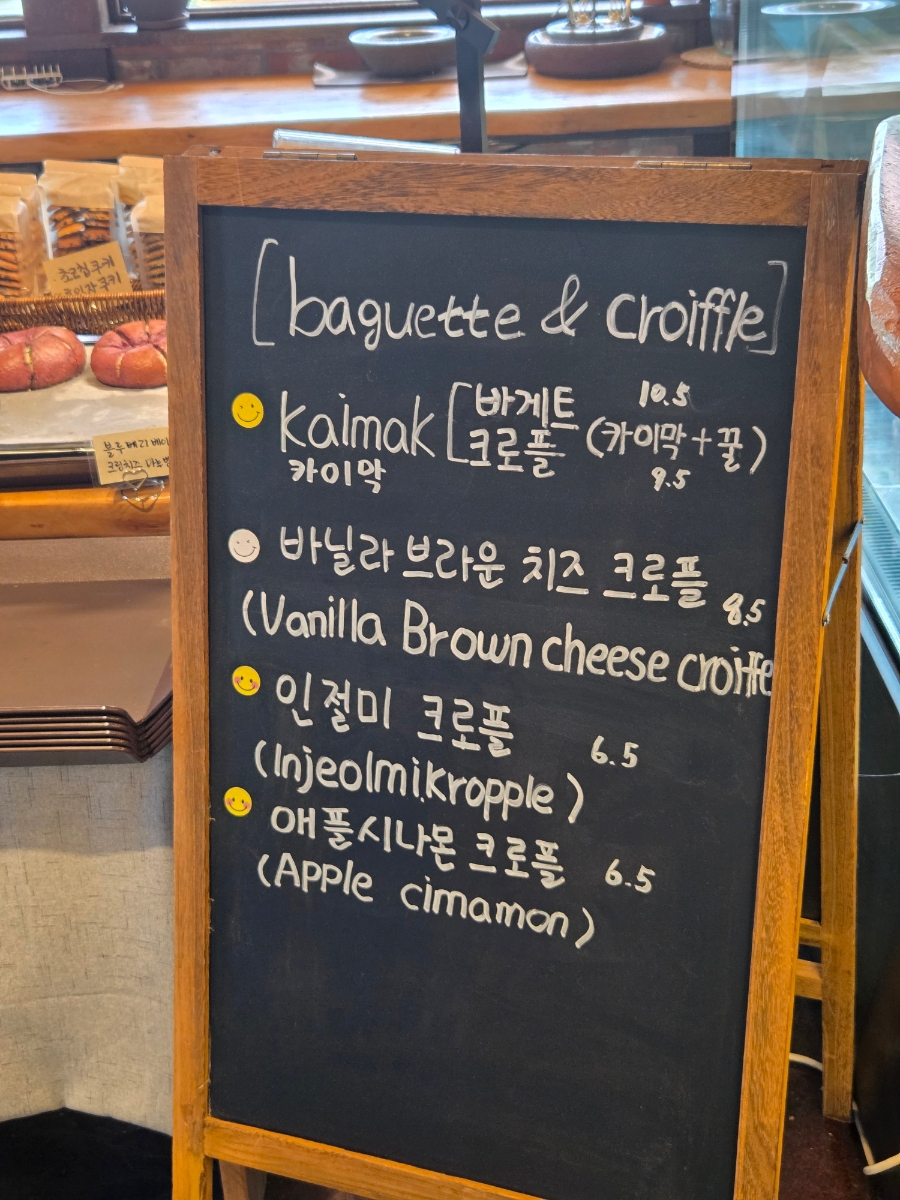 [baguette & croiffle]
Kaimak [바게트 10.5
크로플 (카이막+꿀)
카이막 9.5
바닐라 브라운 치즈 크로플 8.5
(Vanilla Brown cheese croiffle
인절미 크로플 6.5
(Injeolmi kropple)
애플시나몬 크로플 6.5
(Apple cimamon)
초코칩쿠키
블루베리 베이
크림치즈